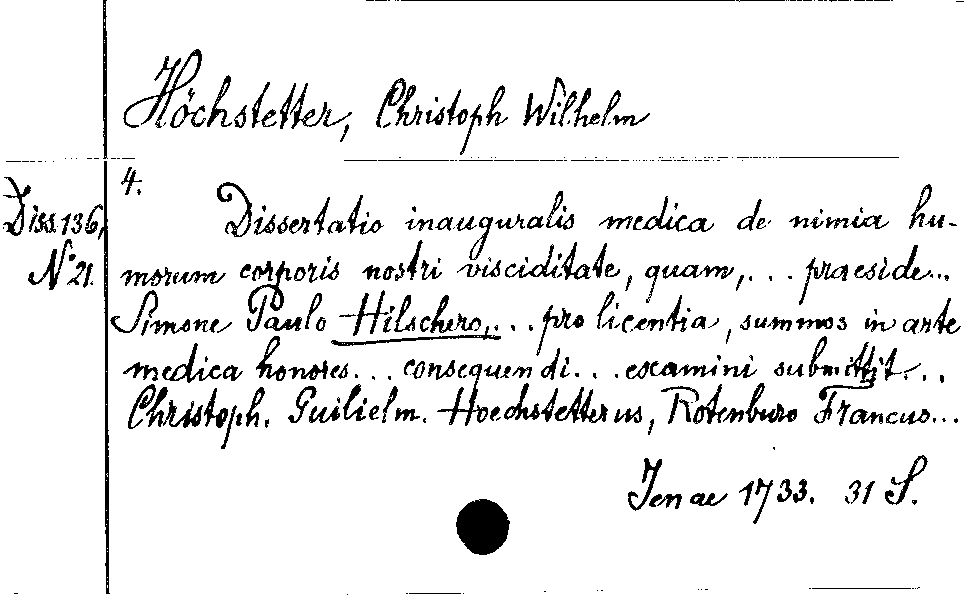 Höchstetter, Christoph Wilhelm
4.
Diss. 136,
N° 21.
Dissertatio inauguralis medica de nimia hu-
morum corporis nostri visciditate, quam, ... praeside ...
Simone Paulo Hilschero, ... pro licentia, summos in arte
medica honores ... consequendi ... examini submittit ...
Christoph. Guilielm. Hoechstetterus, Rotenburo Francus ...
Jenae 1733. 31 S.